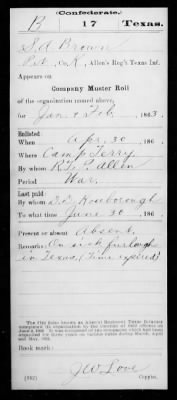 (Confederate.)
B 17 Texas.
S. A. Brown
Pvt, Co. K, Allen's Reg't Texas Inf.
Appears on
Company Muster Roll
of the organization named above,
for Jan & Feb, 1863.
Enlisted:
When Apr. 30, 186
Where Camp Terry
By whom R. T. P. Allen
Period War.
Last paid:
By whom Roseborough
To what time June 30, 186
Present or absent Absent.
Remarks: On sick furlough
in Texas (Time expired)
Book mark:
J W Love
Copyist.